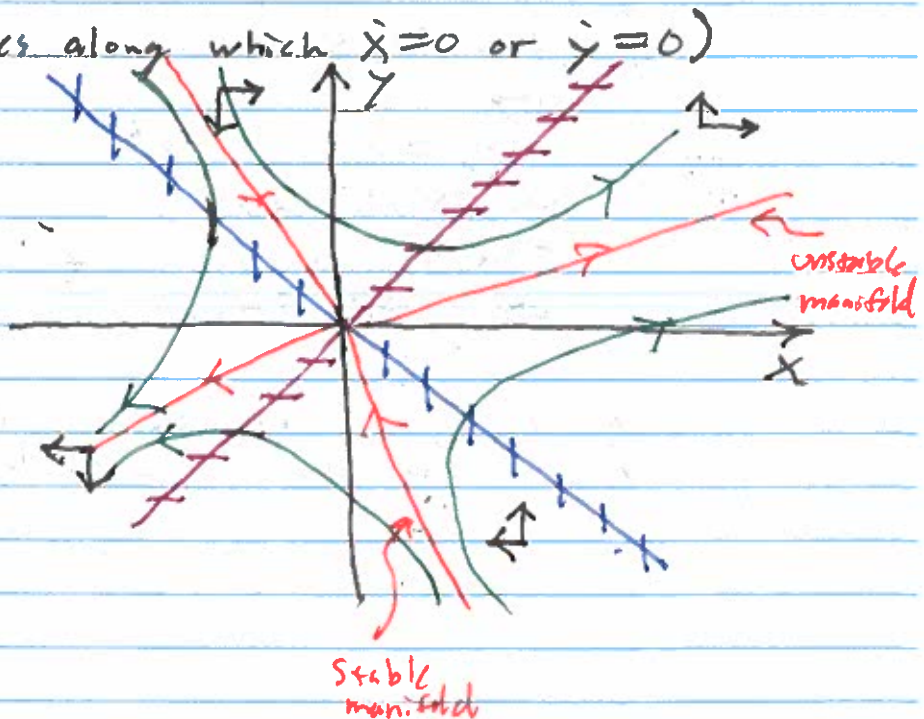 es along which ẋ=0 or ẏ=0)
y
unstable
manifold
x
Stable
manifold